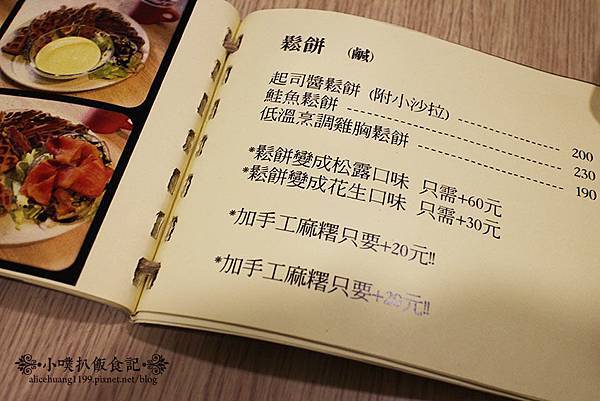 鬆餅 (鹹)
起司醬鬆餅 (附小沙拉) 200
鮭魚鬆餅 230
低溫烹調雞胸鬆餅 190
*鬆餅變成松露口味 只需+60元
*鬆餅變成花生口味 只需+30元
*加手工麻糬只要+20元!!
*加手工麻糬只要+20元!!
小噗扒飯食記
alicehuang1199.pixnet.net/blog